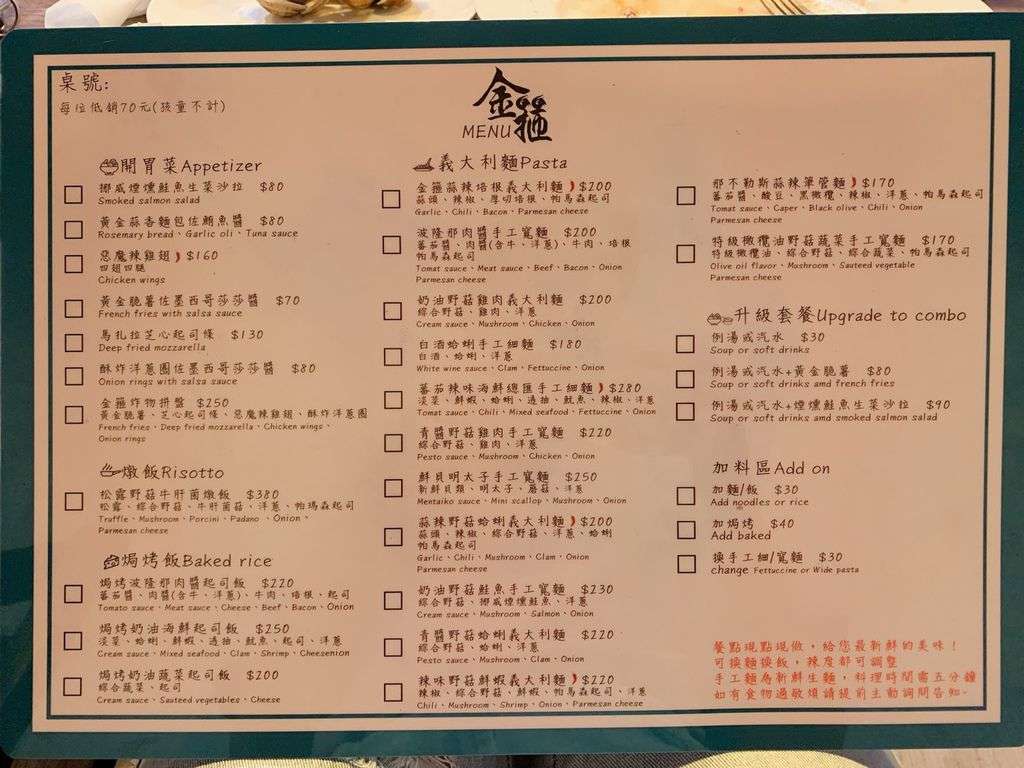 桌號:
每位低銷70元(孩童不計)
金箍
MENU
開胃菜Appetizer
挪威煙燻鮭魚生菜沙拉 $80
Smoked salmon salad
黃金蒜香麵包佐鮪魚醬 $80
Rosemary bread、Garlic oli、Tuna sauce
惡魔辣雞翅 $160
四翅四腿
Chicken wings
黃金脆薯佐墨西哥莎莎醬 $70
French fries with salsa sauce
馬扎拉芝心起司條 $130
Deep fried mozzarella
酥炸洋蔥圈佐墨西哥莎莎醬 $80
Onion rings with salsa sauce
金箍炸物拼盤 $250
黃金脆薯、芝心起司條、惡魔辣雞翅、酥炸洋蔥圈
French fries、Deep fried mozzarella、Chicken wings、
Onion rings
燉飯Risotto
松露野菇牛肝菌燉飯 $380
松露、綜合野菇、牛肝菌菇、洋蔥、帕瑪森起司
Truffle、Mushroom、Porcini、Padano、Onion、
Parmesan cheese
焗烤飯Baked rice
焗烤波隆那肉醬起司飯 $220
蕃茄醬、肉醬(含牛、洋蔥)、牛肉、培根、起司
Tomato sauce、Meat sauce、Cheese、Beef、Bacon、Onion
焗烤奶油海鮮起司飯 $250
淡菜、蛤蜊、鮮蝦、透抽、魷魚、起司、洋蔥
Cream sauce、Mixed seafood、Clam、Shrimp、Cheesenion
焗烤奶油蔬菜起司飯 $200
綜合蔬菜、起司
Cream sauce、Sauteed vegetables、Cheese
義大利麵Pasta
金箍蒜辣培根義大利麵 $200
蒜頭、辣椒、厚切培根、帕馬森起司
Garlic、Chili、Bacon、Parmesan cheese
波隆那肉醬手工寬麵 $200
蕃茄醬、肉醬(含牛、洋蔥)、牛肉、培根
帕馬森起司
Tomat sauce、Meat sauce、Beef、Bacon、Onion
Parmesan cheese
奶油野菇雞肉義大利麵 $200
綜合野菇、雞肉、洋蔥
Cream sauce、Mushroom、Chicken、Onion
白酒蛤蜊手工細麵 $180
白酒、蛤蜊、洋蔥
White wine sauce、Clam、Fettuccine、Onion
蕃茄辣味海鮮總匯手工細麵 $280
淡菜、鮮蝦、蛤蜊、透抽、魷魚、辣椒、洋蔥
Tomat sauce、Chili、Mixed seafood、Fettuccine、Onion
青醬野菇雞肉手工寬麵 $220
綜合野菇、雞肉、洋蔥
Pesto sauce、Mushroom、Chicken、Onion
鮮貝明太子手工寬麵 $250
新鮮貝類、明太子、蘑菇、洋蔥
Mentaiko sauce、Mini scallop、Mushroom、Onion
蒜辣野菇蛤蜊義大利麵 $200
蒜頭、辣椒、綜合野菇、洋蔥、蛤蜊
帕馬森起司
Garlic、Chili、Mushroom、Clam、Onion
Parmesan cheese
奶油野菇鮭魚手工寬麵 $230
綜合野菇、挪威煙燻鮭魚、洋蔥
Cream sauce、Mushroom、Salmon、Onion
青醬野菇蛤蜊義大利麵 $220
綜合野菇、蛤蜊、洋蔥
Pesto sauce、Mushroom、Clam、Onion
辣味野菇鮮蝦義大利麵 $220
辣椒、綜合野菇、鮮蝦、帕馬森起司、洋蔥
Chili、Mushroom、Shrimp、Onion、Parmesan cheese
那不勒斯蒜辣筆管麵 $170
蕃茄醬、酸豆、黑橄欖、辣椒、洋蔥、帕馬森起司
Tomat sauce、Caper、Black olive、Chili、Onion
Parmesan cheese
特級橄欖油野菇蔬菜手工寬麵 $170
特級橄欖油、綜合野菇、綜合蔬菜、帕馬森起司
Olive oil flavor、Mushroom、Sauteed vegetable
Parmesan cheese
升級套餐Upgrade to combo
例湯或汽水 $30
Soup or soft drinks
例湯或汽水+黃金脆薯 $80
Soup or soft drinks amd french fries
例湯或汽水+煙燻鮭魚生菜沙拉 $90
Soup or soft drinks amd smoked salmon salad
加料區Add on
加麵/飯 $30
Add noodles or rice
加焗烤 $40
Add baked
換手工細/寬麵 $30
change Fettuccine or Wide pasta
餐點現點現做，給您最新鮮的美味！
可換麵換飯，辣度都可調整
手工麵為新鮮生麵，料理時間需五分鐘
如有食物過敏煩請提前主動詢問告知。